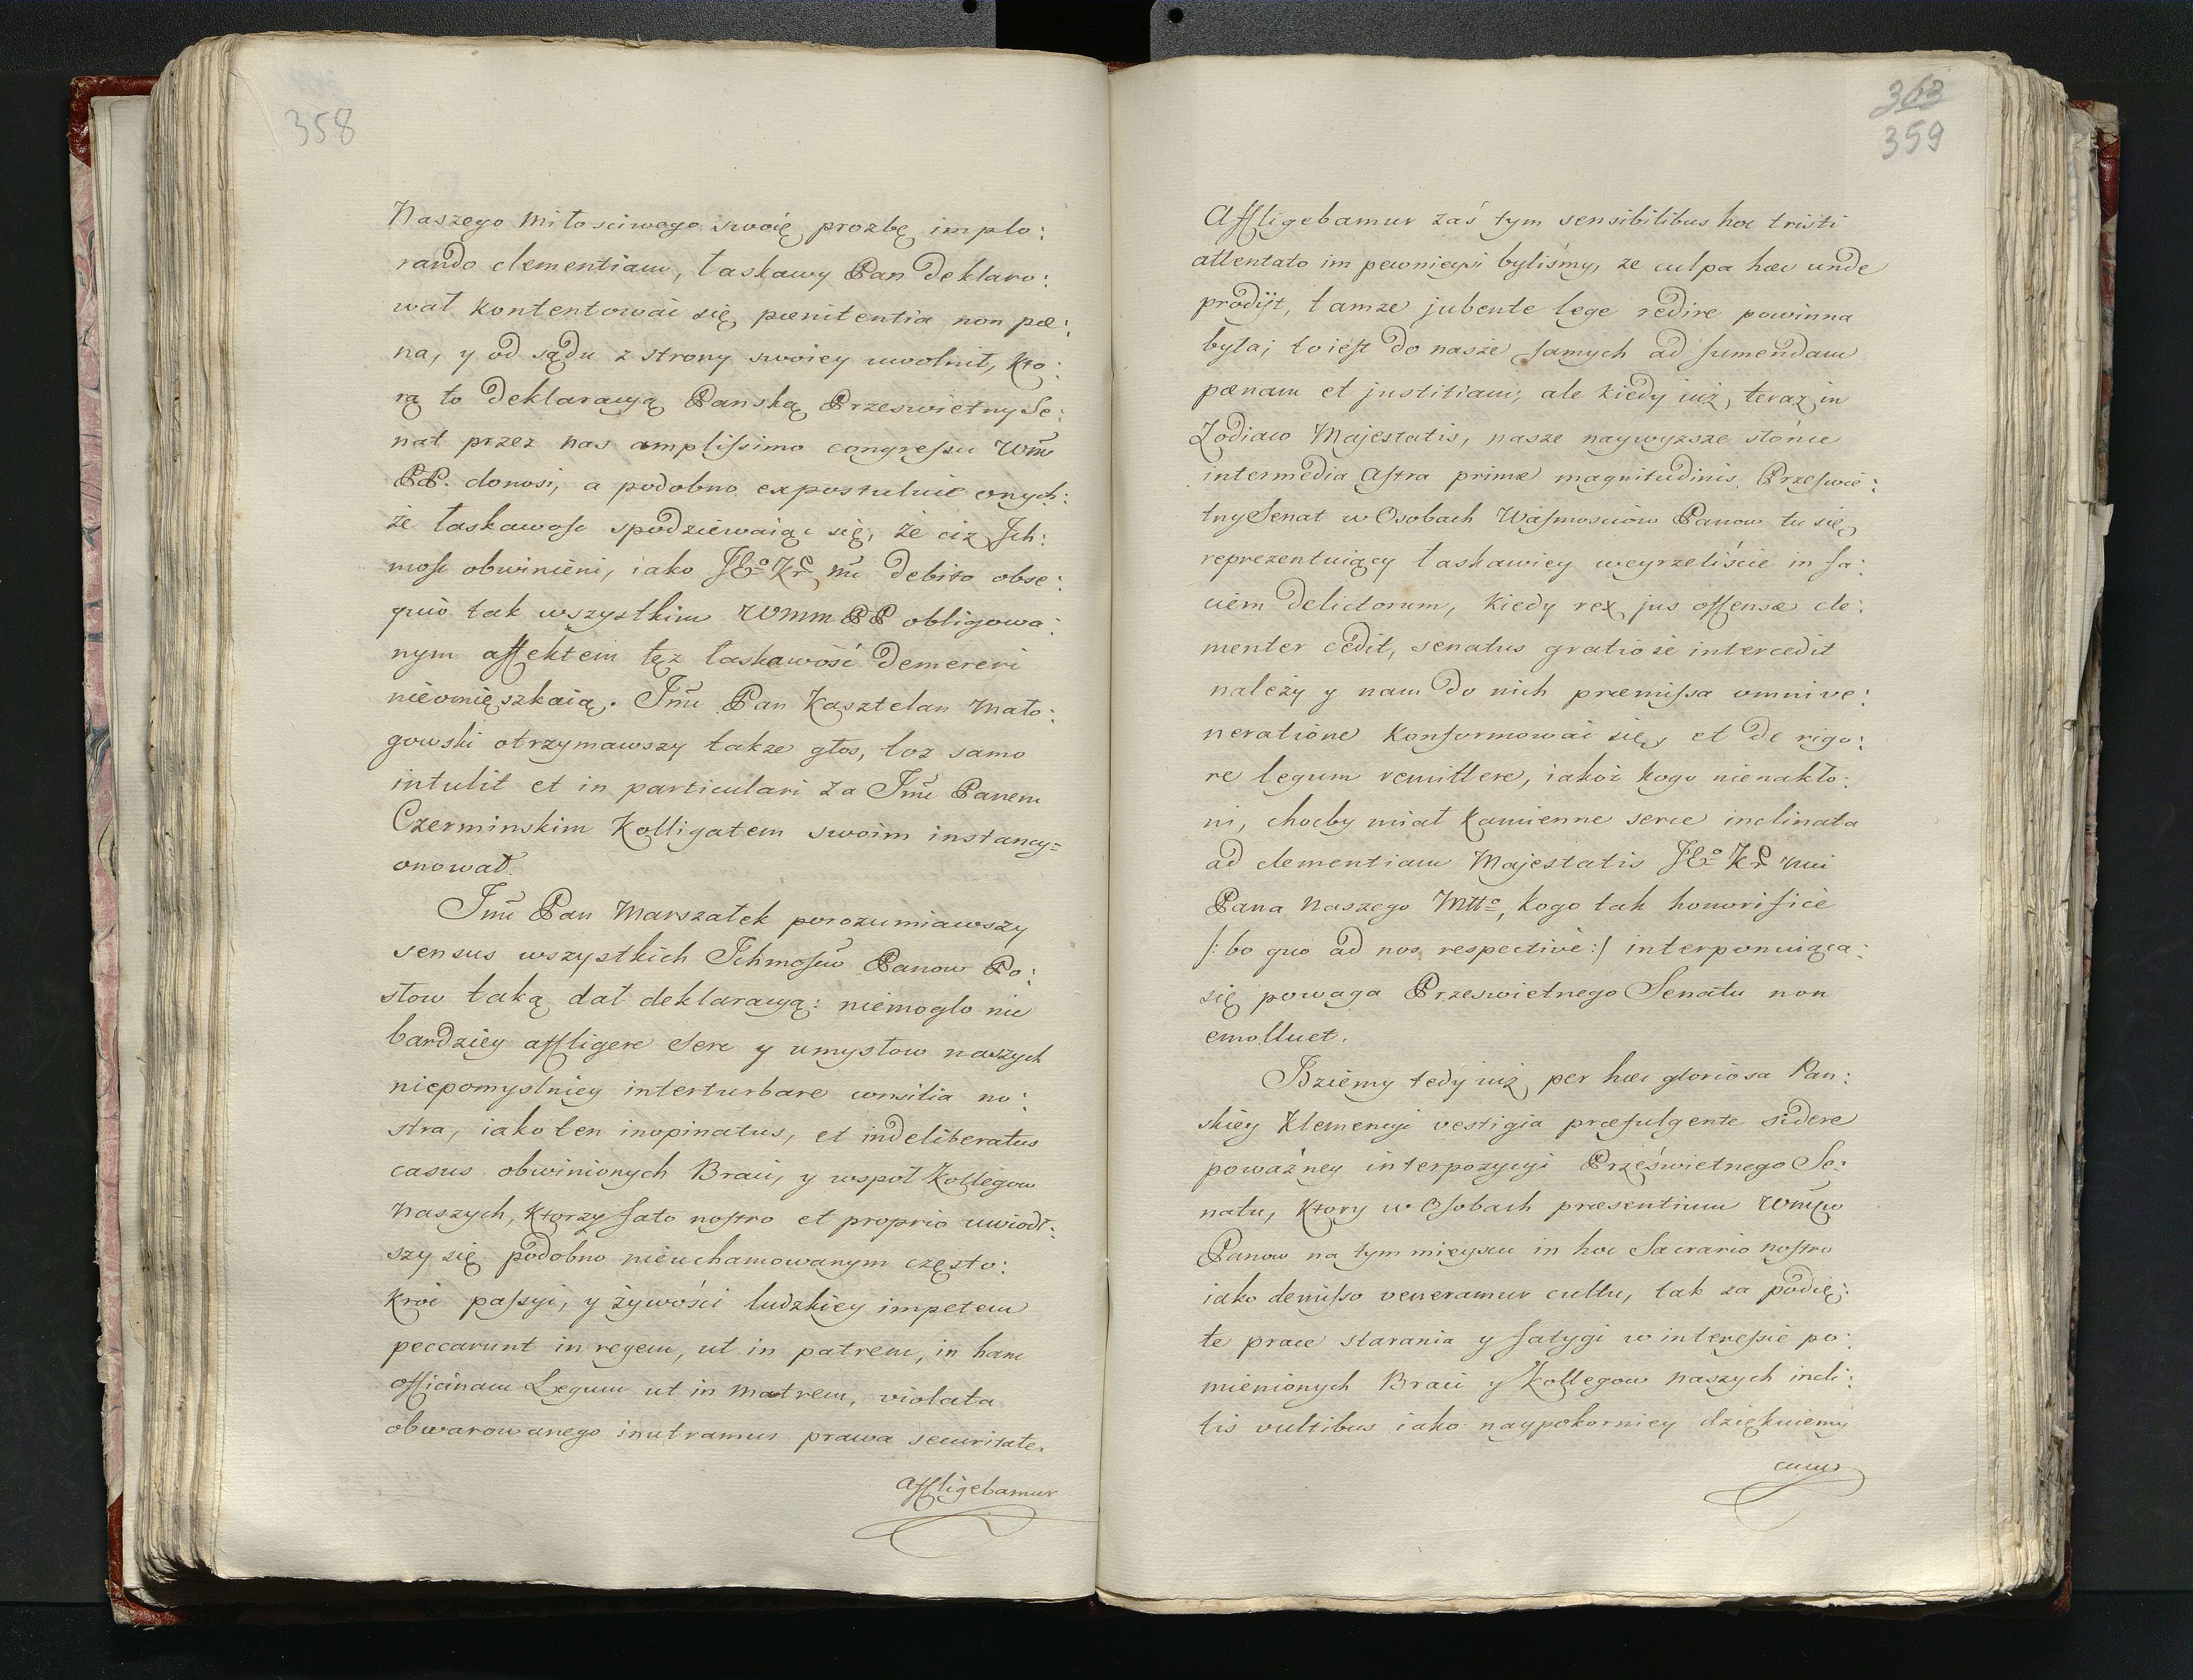 358
Naszego Miłosciwego swoię prozbę implo:
rando clementiam, łaskawy Pan deklaro:
wał kontentować się pœnitentia non pœ:
na, y od sądu z strony swoiey uwolnił, kto:
rą to deklaracyą Panską Przeswietny Se:
nat przez nas amplissimo congressu Wm̃
PP. donosi, a podobno expostuluie onych:
że łaskawosc spodziewaiąc się, że ciz Ich:
mosc obwinieni, iako JEo Kr mci debito obse:
quio tak wszystkim WMM PP obligowa:
nym affektem tęz łaskawość demereri
nieomięszkaią. Jmć Pan Kasztelan Mało:
gowski otrzymawszy takze głos, toz samo
intulit et in particulari za Jmć Panem
Czerminskim Kolligatem swoim instancy=
onował.
Jmć Pan Marszałek porozumiawszy
sensus wszystkich Ichmosciow Panow Po:
słow taką dał deklaracyą: niemogło nic
bardziey affligere serc y umysłow naszych
niepomyslniey interturbare consilia no:
stra, iako ten inopinatus, et indeliberatus
casus obwinionych Braci, y wspoł Kollegow
Naszych, Ktorzy fato nostro et proprio uwiodł:
szy się podobno nieuchamowanym często:
kroć passyi, y żywości ludzkiey impetem
peccarunt in regem, ut in patrem, in hanc
officinam Legum ut in Matrem, violata
obwarowanego inutramus prawa securitate.
affligebamur
363
359
Affligebamur zaś tym sensibilibus hoc tristi
attentato im pewnieysi byliśmy, ze culpa hæc unde
prodijt, tamze jubente lege redire powinna
była; toiest do nasze samych ad sumendam
pœnam et justitiam, ale kiedy iuż, teraz in
Zodiaco Majestatis, nasze naywyzsze słońce
intermedia Astra primæ magnitudinis Przeswie:
tny Senat w Osobach Wasmosciow Panow tu się
reprezentuiący łaskawiey weyrzeliście in fa:
ciem delictorum, kiedy rex jus offensæ cle:
menter cedit, senatus gratiose intercedit
należy y nam do nich præmissa omni ve:
neratione konformować się, et de rigo:
re legum remittere, iakoż kogo nienakło:
ni, choćby miał kamienne serce inclinata
ad clementiam Majestatis JEo Kr mci
Pana Naszego Mtto, kogo tak honorificè
/: bo quo ad nos respectivè :/ interponuiąca:
się powaga Przeswietnego Senatu non
emolluet.
Idziemy tedy iuż per hæc gloriosa Pan:
skiey Klemencyi vestigia præfulgente sidere
poważney interpozycyi Prześwietnego Se:
natu, Ktory w Osobach præsentium Wmciow
Panow na tym mieyscu in hoc Sacrario nostro
iako demisso veneramur cultu, tak za podię:
te prace starania y fatygi w interessie po:
mienionych Braci y Kollegow naszych incli:
tis vultibus iako naypokorniey dziękuiemy